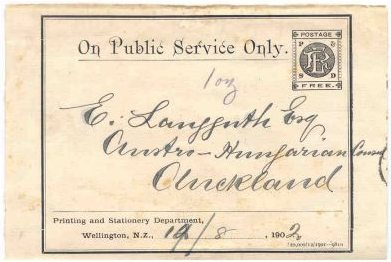 On Public Service Only.
POSTAGE
P S
S D
FREE.
1 oz
E. Langguth Esq
Austro-Hungarian Consul
Auckland
Printing and Stationery Department,
Wellington, N.Z., 19/8, 1902.